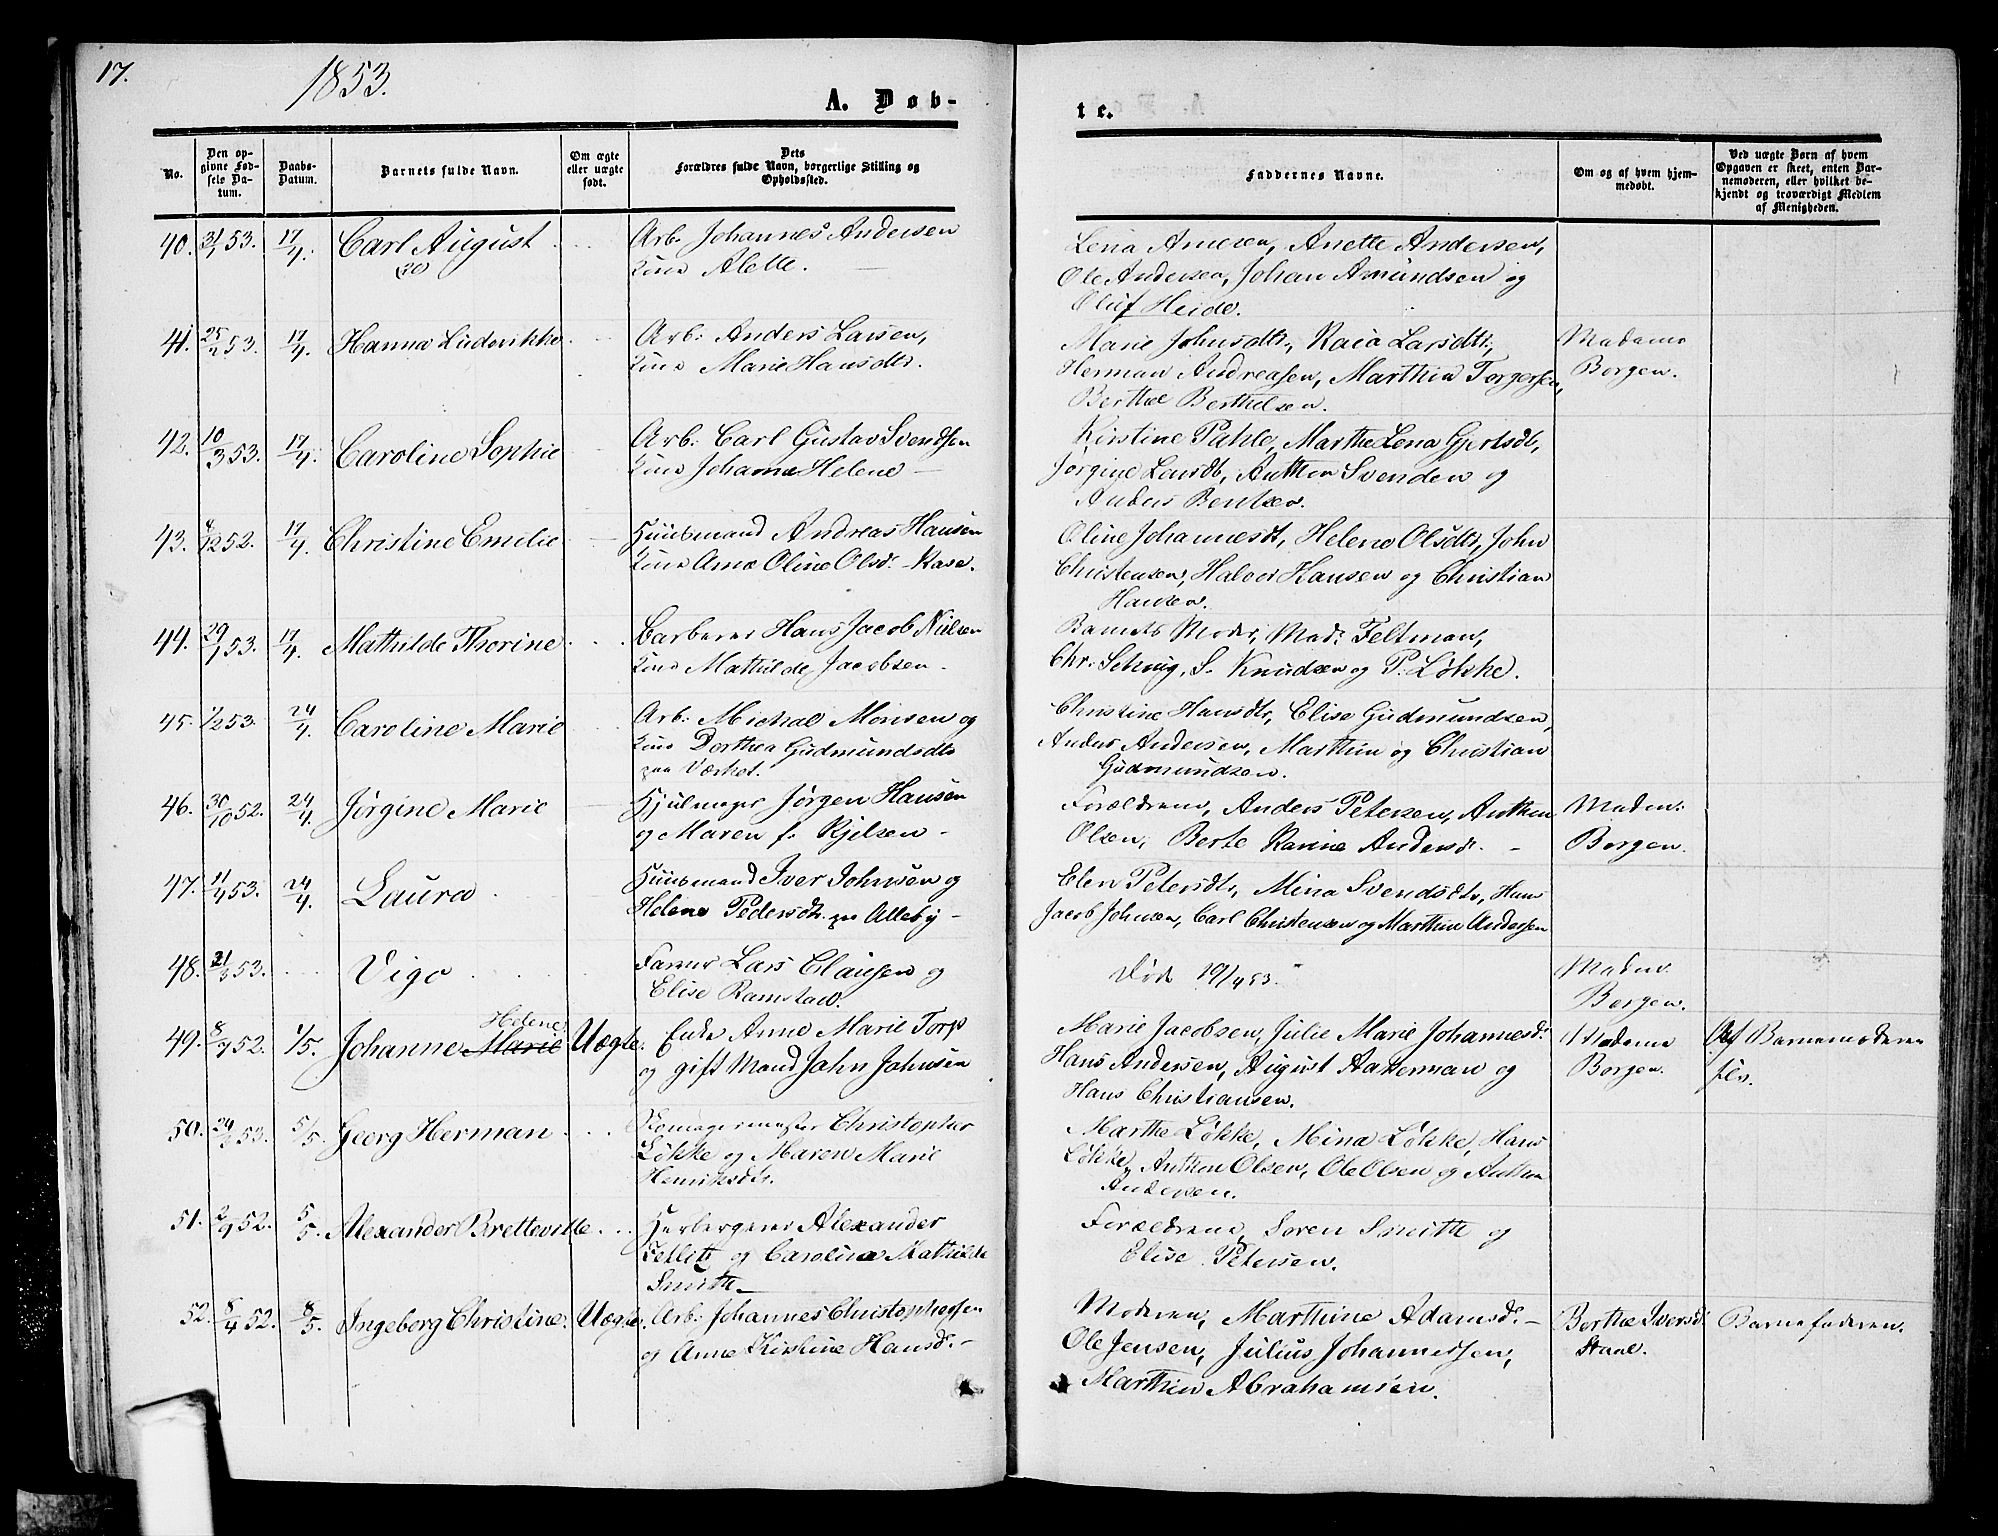 17.
1853.
A. Døb-
te.
No.
Den opgivne Fødsels Datum.
Daabs-Datum.
Barnets fulde Navn.
Om ægte eller uægte født.
Dets Forældres fulde Navn, borgerlige Stilling og Opholdssted.
Faddernes Navne.
Om og af hvem hjemmedøbt.
Ved uægte Børn af hvem Opgaven er skeet, enten Barnemoderen, eller hvilket bekjendt og troværdigt Medlem af Menigheden.
40. 31/1 53. 17/4. Carl August
Arb: Johannes Andersen
Alette.
Lena Anette Andersen,
Ole Andersen, Johan Amundsen og
Oluf Heide.
41. 25/2 53. 17/4. Hanna Ludovikke
Arb: Anders Larsen,
Marie Hansdtr.
Marie Johnsdtr, Kaia Larsdtr,
Herman Andreasen, Marthin Torgersen,
Berthe Berthelsen.
Madame
Borgen.
42. 10/3 53. 17/4. Caroline Sophie
Arb: Carl Gustav Svendsen
Johanne Helene
Kirstine Pahle, Marthe Lena Gjertsdt,
Jørgine Anthon Svenden og
Anders Bentsen.
43. /12 52. 17/4. Christine Emilie
Huusmand Andreas Hansen
Anne Oline Olsdr.
Oline Johannesdt, Helene Olsdtr, John
Christensen, Halvor Hansen og Christian
Hansen.
44. 29/1 53. 17/4. Mathilde Thorine
Barberer Hans Jacob Nielsen
Mathilde Jacobsen
Barnets Moder, Mad: Feltman,
Chr: S. Knudsen og P. Løkke.
45. 1/2 53. 24/4. Caroline Marie
Arb: Michael Monsen og
Dorthea Gudmundsdtr
paa Værket.
Christine Hansdtr, Elise Gudmundsen,
Anders Andersen, Marthin og Christian
Gudmundsen.
46. 30/10 52. 24/4. Jørgine Marie
Hjulmager Jørgen Hansen
og Maren f. Kjelsen
Forældrene, Anders Petersen, Anthon
Olsen, Berte Karine Andersdt.
Madm:
Borgen.
47. 11/4 53. 24/4. Laura
Huusmand Iver Johnsen og
Helene Pedersdtr. paa Alleby
Elen Petersdtr, Mina Svendsdtr, Hans
Jacob Johnsen, Carl Christensen og Marthin Andersen
48. 21/3 53. Vigo
Lars Clausen og
Elise Ramstad.
Død 19/4 53.
Madm.
Borgen.
49. 8/ 52. 1/5. Johanne Marie Helene Uægte.
Enke Anne Marie Torp
og gift Mand John Johnsen
Marie Jacobsen, Julie Marie Johannesd:
Hans Andersen, August Aakerman og
Hans Christiansen.
Madame
Borgen.
Af Barnemoderen
selv.
50. 24/ 53. 5/5. Georg Herman
Christopher
Løkke og Maren Marie
Henriksdtr.
Marthe Løkke, Mina Løkke, Hans
Løkke, Anthon Olsen, Ole Olsen og Anthon
Andersen.
51. 2/9 52. 5/5. Alexander Bretteville
Herbergerer Alexander
og Caroline Mathilde
Smith
Forældrene, Søren Smith og
Elise Petersen.
52. 8/4 52. 8/5. Ingeborg Christine. Uægte.
Arb: Johannes Christophersen
og Anne Kirstine Hansd:
Moderen, Marthine Adamsd:
Ole Jensen, Julius Johannessen,
Marthin Abrahamsen.
Berthe Iversd:
Staal.
Barnefaderen.